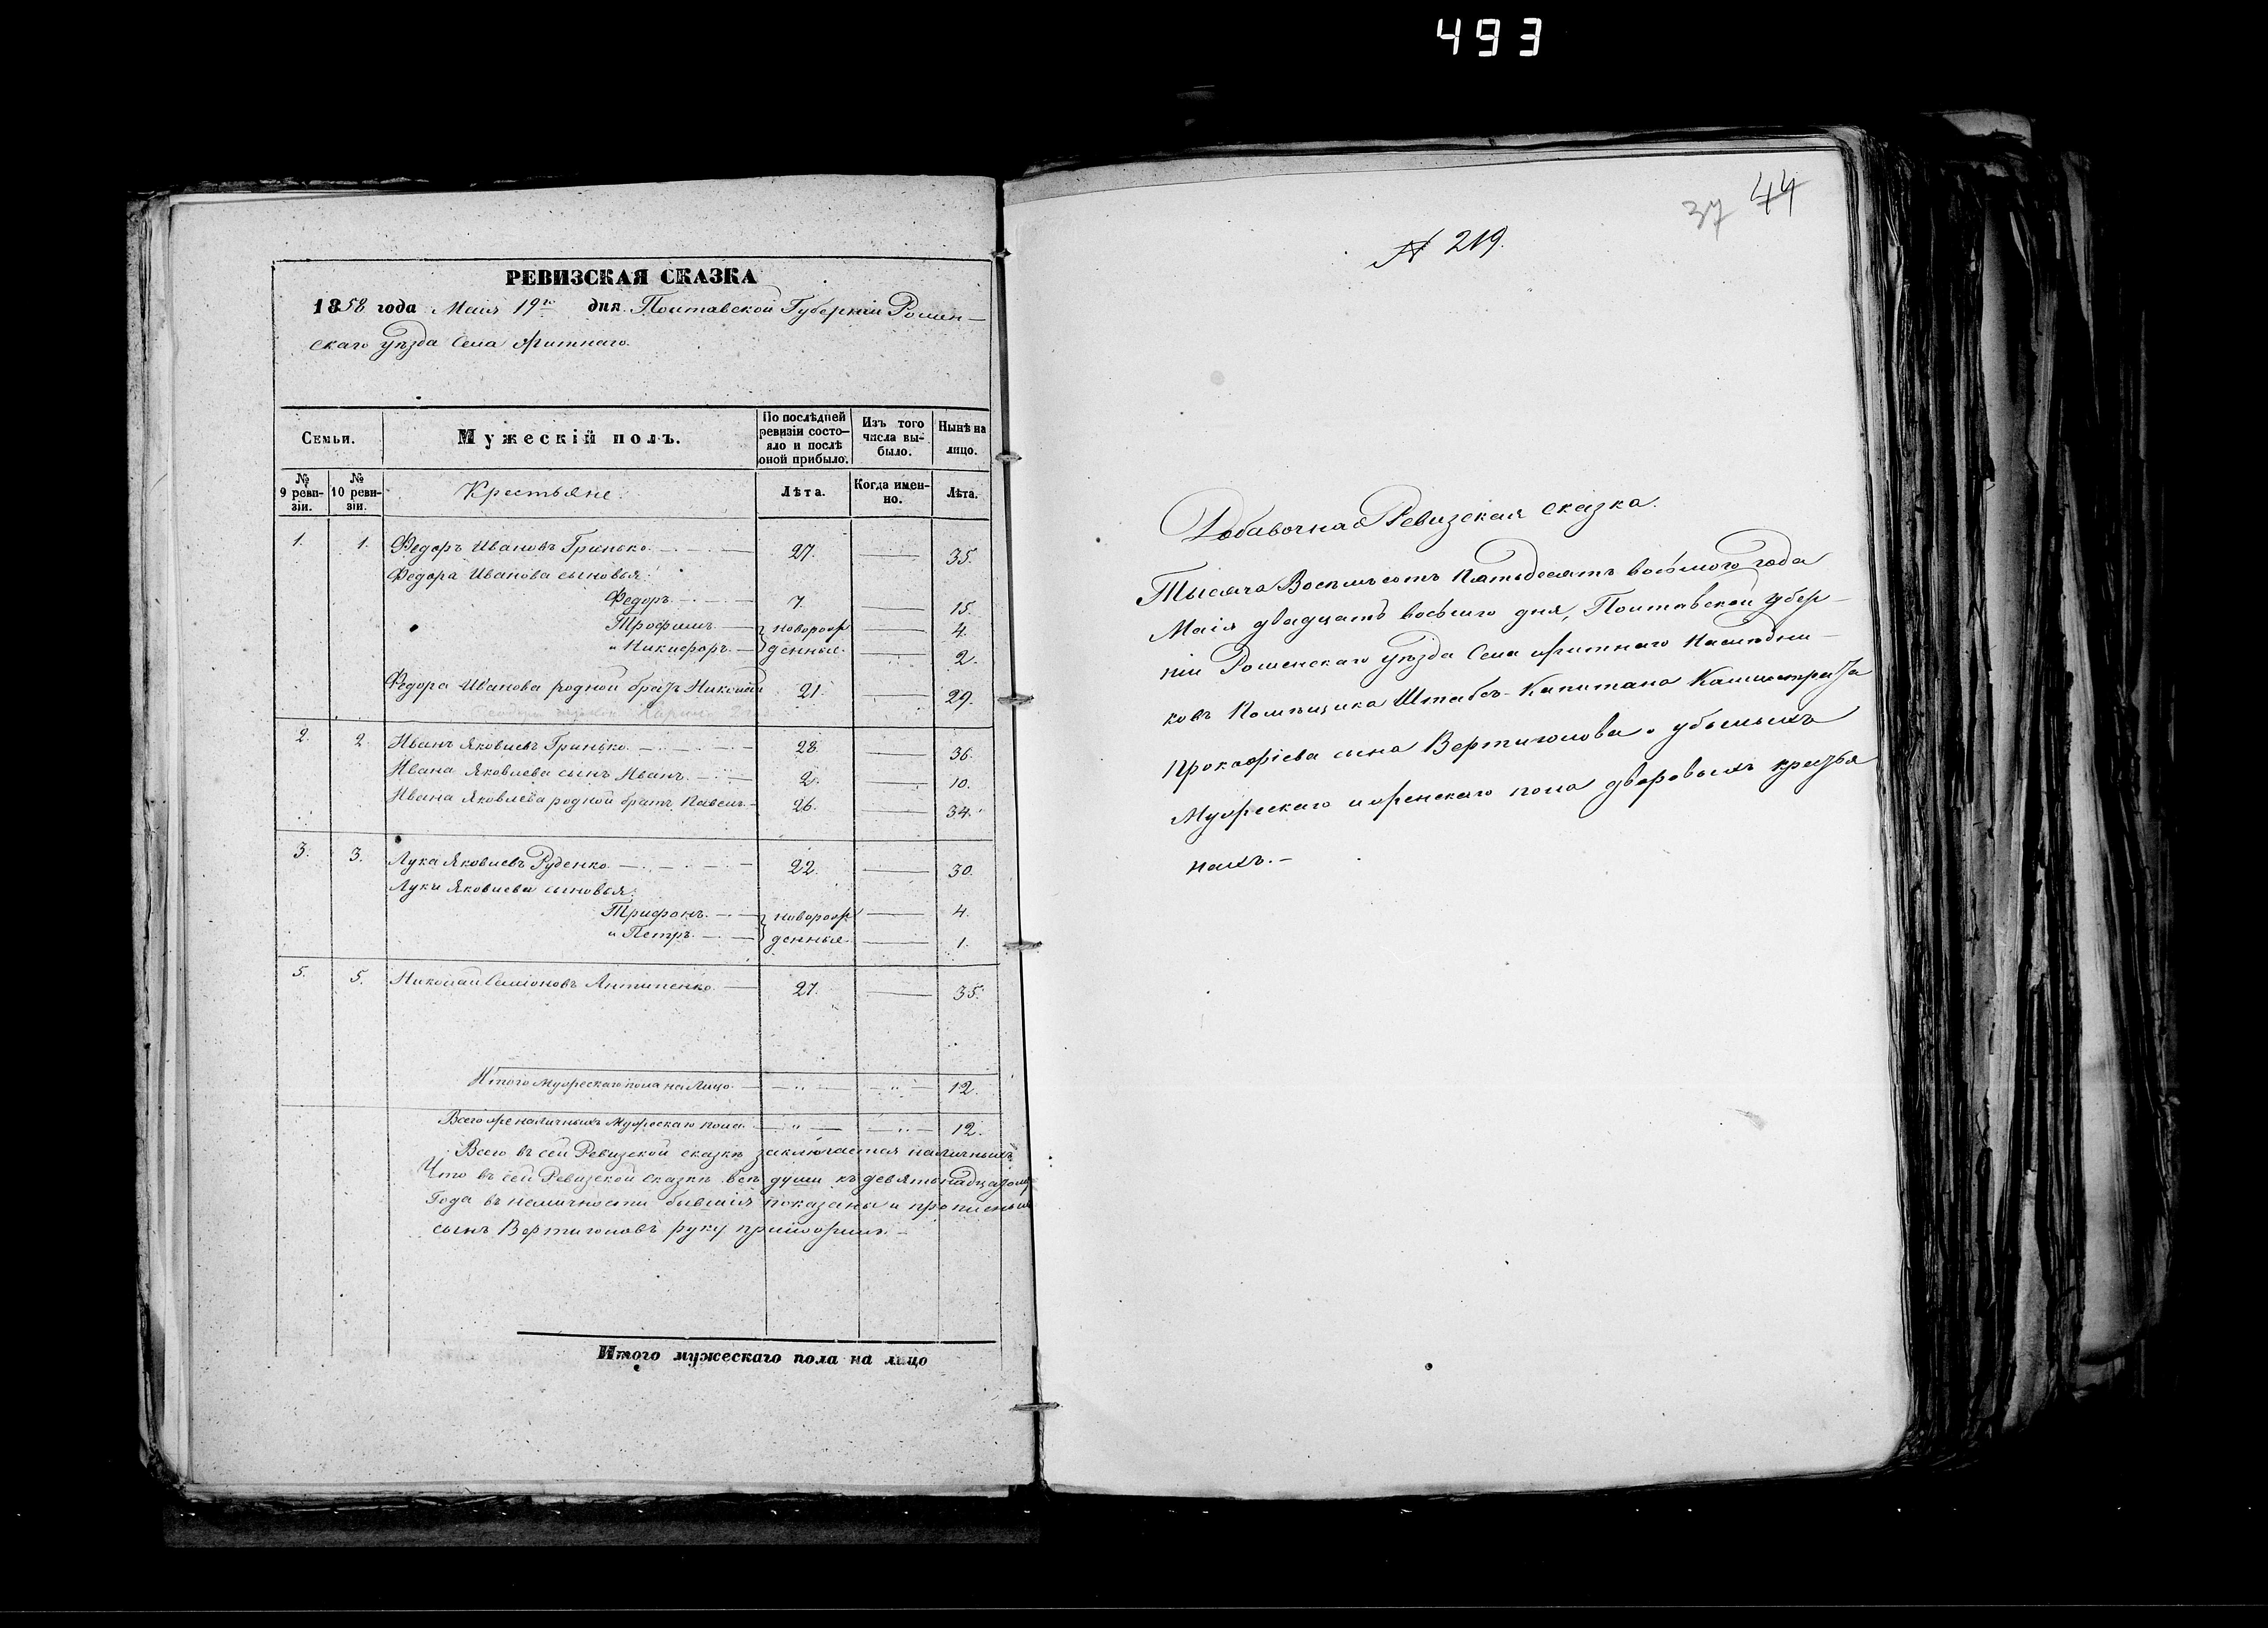 493
РЕВИЗСКАЯ СКАЗКА
1858 года Маія 19го дня Полтавской Губерніи Ромен-
скаго уѣзда Села Житнаго.
Семьи.
Мужескій полъ.
По послѣдней ревизіи состо-яло и послѣ оной прибыло.
Изъ того числа вы-было.
Нынѣ на лицо.
№ 9 реви-зіи.
№ 10 реви-зіи.
Крестьяне.
Лѣта.
Когда имен-но.
Лѣта.
1. 1. Федоръ Ивановъ Гринько 27. 35.
Федора Иванова сыновья:
Федоръ 7. 15.
Трофимъ новорож 4.
и Никифоръ денные 2.
Федора Иванова родной братъ Николай 21. 29.
2. 2. Иванъ Яковлевъ Гринько 28. 36.
Ивана Яковлева сынъ Иванъ 2. 10.
Ивана Яковлева родной братъ Павелъ 26. 34.
3. 3. Лука Яковлевъ Руденко 22. 30.
Луки Яковлева сыновья:
Трифонъ новорож 4.
и Петръ денные 1.
5. 5. Николай Антипенко 27. 35.
Итого Мужескаго пола на Лицо 12.
Всего же наличныхъ Мужескаго пола 12.
Всего въ сей Ревизской сказкѣ заключается наличныхъ
Что въ сей Ревизской сказкѣ всѣ души къ
Года въ наличности бывшія показаны и
сынъ Вертиголовъ руку приложилъ.
Итого мужескаго пола на лицо
37 44
№ 219.
Добавочная Ревизская сказка.
Тысяча Восемьсотъ Пятьдесятъ восьмого года
Маія двадцать восьмого дня, Полтавской Губер-
ніи Роменскаго уѣзда Села Житнаго Наслѣдни-
ковъ Помѣщика Штабсъ-Капитана Калистрата
Прокофіева сына Вертиголова о убылыхъ
Мужескаго и женскаго пола дворовыхъ крестья
нахъ.-